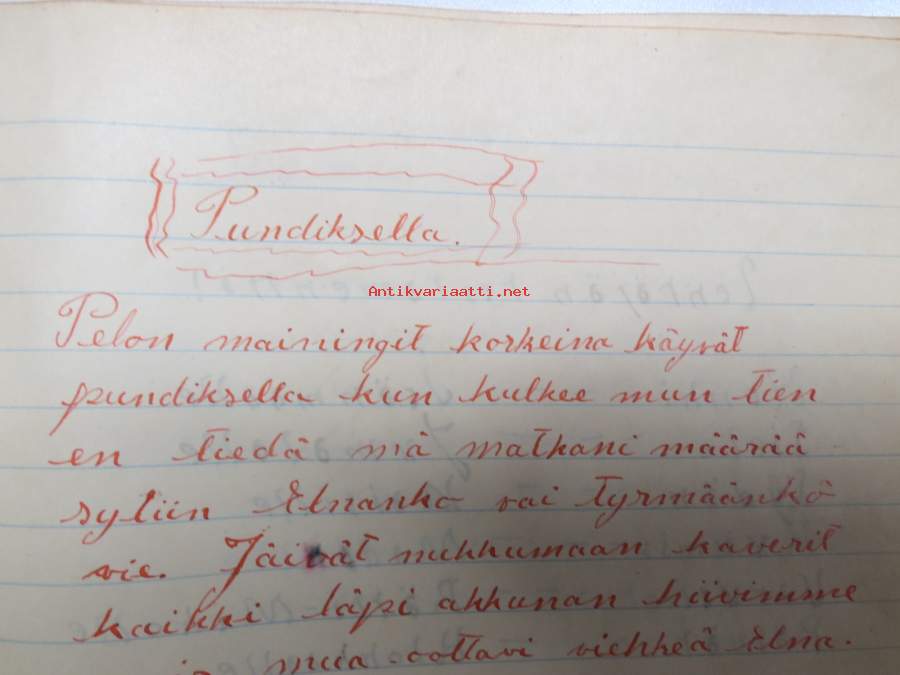 Pundiksella.
Antikvariaatti.net
Pelon mainingit korkeina käyvät
pundiksella kun kulkee mun tien
en tiedä mä matkani määrää
syliin Elnanko vai tyrmäänkö
vie. Jäivät nukkumaan kaverit
kaikki läpi akkunan hiivimme
mua oottavi viehkeä Elna.